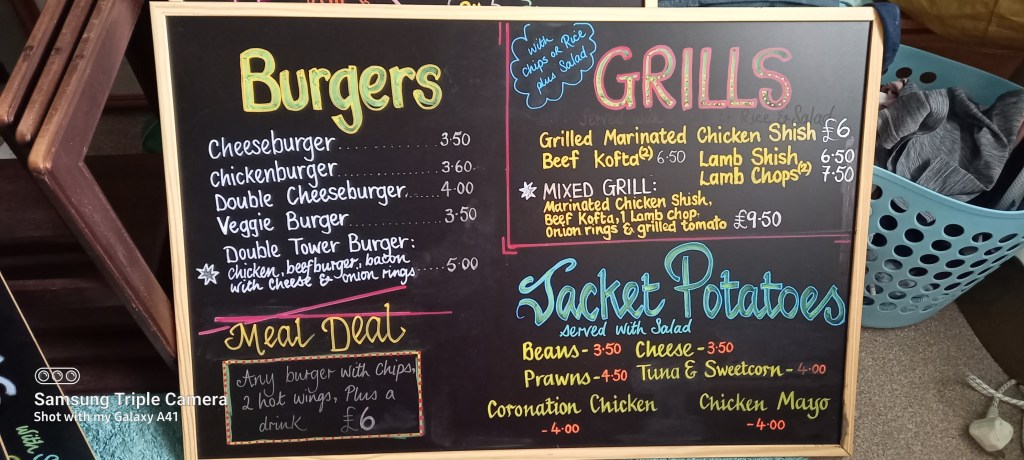 Burgers
Cheeseburger............ 3.50
Chickenburger............ 3.60
Double Cheeseburger..... 4.00
Veggie Burger............ 3.50
Double Tower Burger:
chicken, beefburger, bacon
with cheese & onion rings ..... 5.00
Meal Deal
Any burger with chips,
2 hot wings, Plus a
drink £6
with
chips or Rice
plus Salad
GRILLS
Rice & Salad
Grilled Marinated Chicken Shish £6
Beef Kofta(2) 6.50 Lamb Shish 6.50
Lamb Chops(2) 7.50
MIXED GRILL:
Marinated Chicken Shish,
Beef Kofta, 1 Lamb chop.
Onion rings & grilled tomato £9.50
Jacket Potatoes
served with Salad
Beans - 3.50 Cheese - 3.50
Prawns - 4.50 Tuna & Sweetcorn - 4.00
Coronation Chicken Chicken Mayo
- 4.00 - 4.00
Samsung Triple Camera
Shot with my Galaxy A41